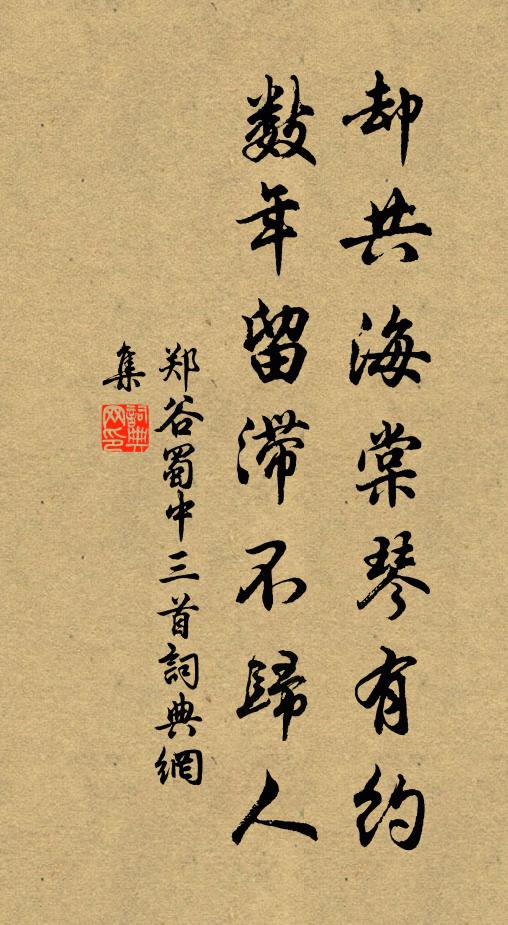 却共海棠琴有约
数年留滞不歸人
郑谷蜀中三首詞典網
集
詞典
网印